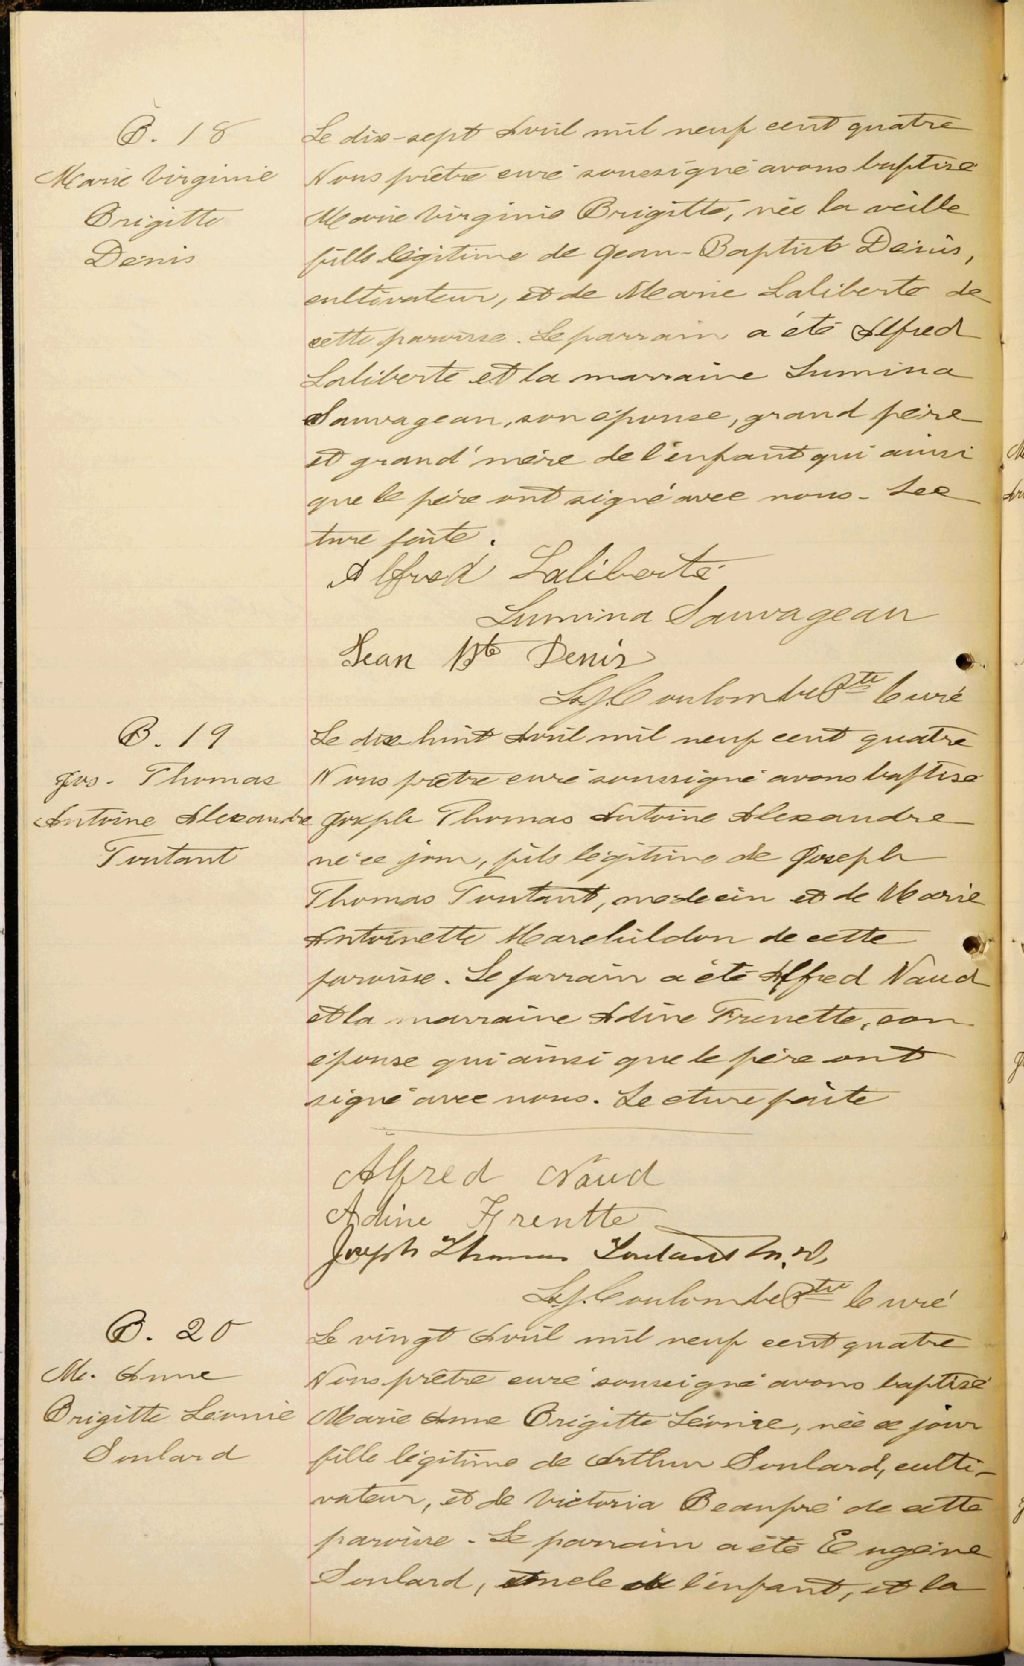 B. 18
Marie Virginie
Brigitte
Denis
Le dix-sept Avril mil neuf cent quatre
Nous prêtre curé soussigné avons baptisé
Marie Virginie Brigitte, née la veille
fille légitime de Jean-Baptiste Denis,
cultivateur, et de Marie Laliberté de
cette paroisse. Le parrain a été Alfred
Laliberté et la marraine Lumina
Sauvageau, son épouse, grand père
et grand'mère de l'enfant qui ainsi
que le père ont signé avec nous. Lec
ture faite.
Alfred Laliberté
Lumina Sauvageau
Jean Bte Denis
Coulombe Ptre Curé
B. 19
Jos. Thomas
Antoine Alexandre
Toutant
Le dix-huit Avril mil neuf cent quatre
Nous prêtre curé soussigné avons baptisé
Joseph Thomas Antoine Alexandre
né ce jour, fils légitime de Joseph
Thomas Toutant, médecin et de Marie
Antoinette Marchildon de cette
paroisse. Le parrain a été Alfred Naud
et la marraine Adine Frenette, son
épouse qui ainsi que le père ont
signé avec nous. Lecture faite
Alfred Naud
Adine Frentte
Joseph Thomas Toutant M.D.
Coulombe Ptre Curé
B. 20
M. Anne
Brigitte Léonie
Soulard
Le vingt Avril mil neuf cent quatre
Nous prêtre curé soussigné avons baptisé
Marie Anne Brigitte Léonie, née ce jour
fille légitime de Arthur Soulard, culti-
vateur, et de Victoria Beaupré de cette
paroisse. Le parrain a été Eugène
Soulard, oncle de l'enfant, et la